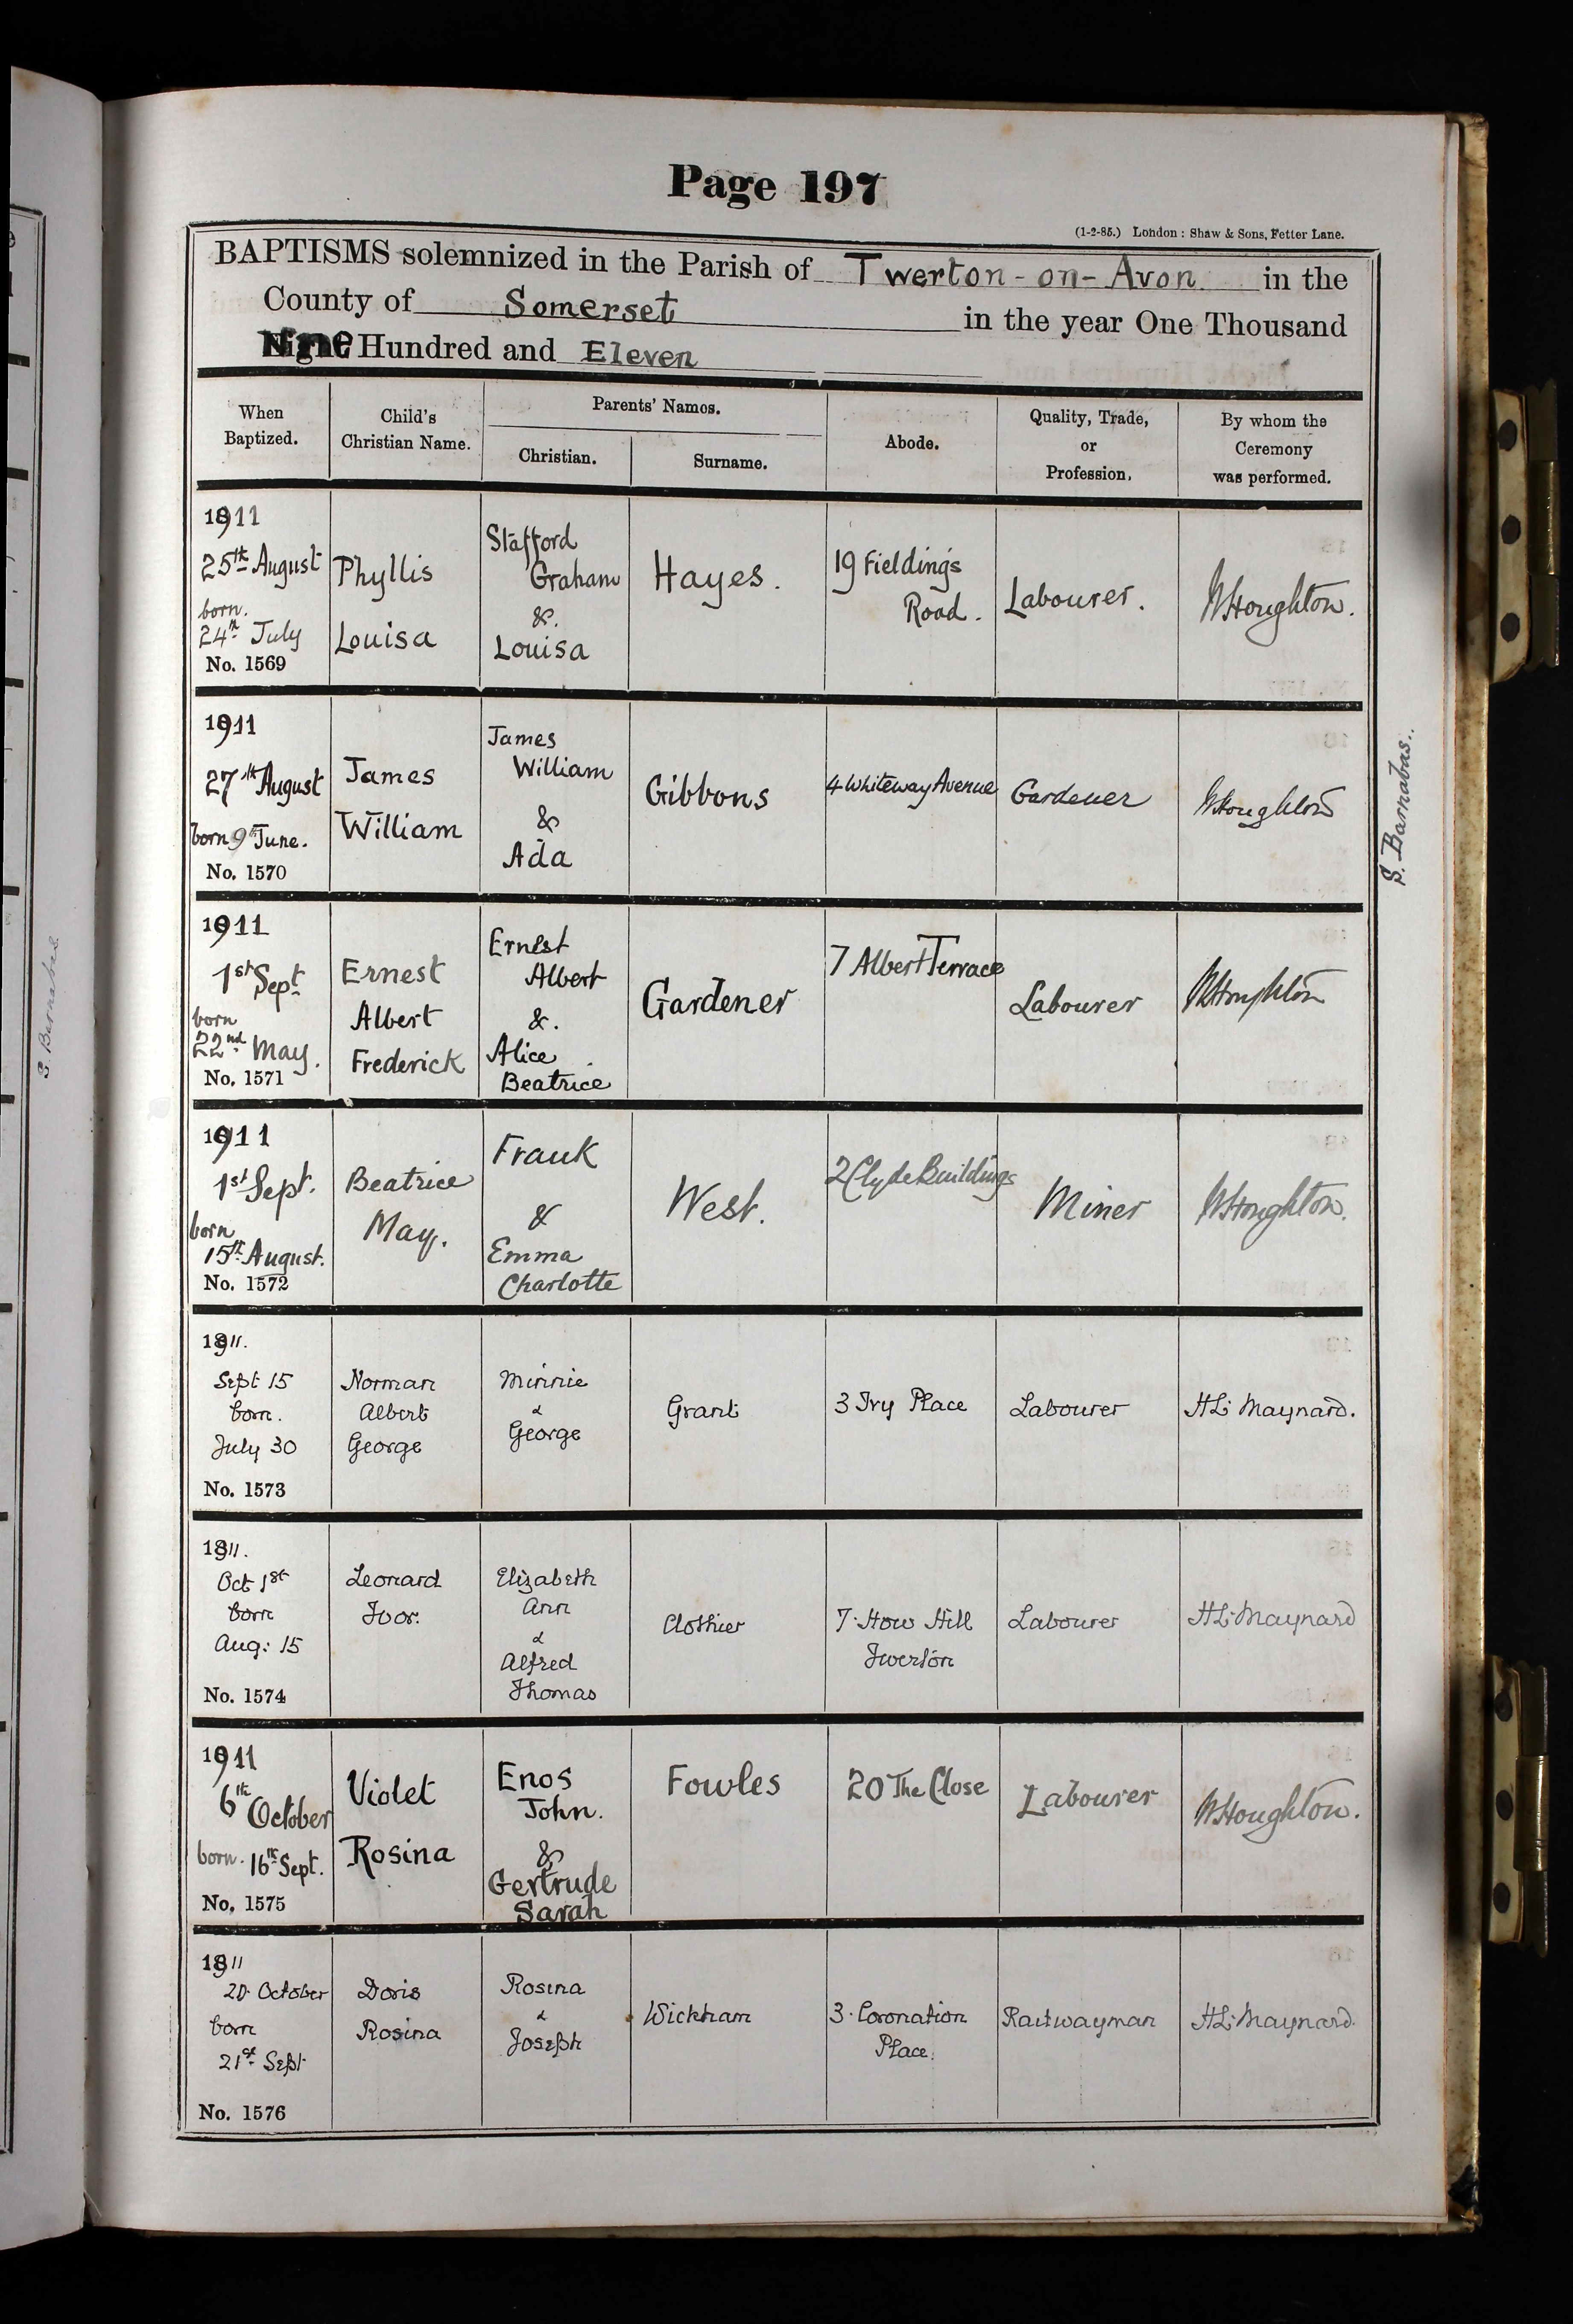 Page 197
(1-2-85.) London: Shaw & Sons, Fetter Lane.
BAPTISMS solemnized in the Parish of Twerton-on-Avon in the
County of Somerset in the year One Thousand
Nine Hundred and Eleven
When Baptized.
Child's Christian Name.
Parents' Names.
Christian.
Surname.
Abode.
Quality, Trade, or Profession.
By whom the Ceremony was performed.
1911
25th August
born.
24th July
No. 1569
Phyllis
Louisa
Stafford
Graham
&.
Louisa
Hayes.
19 Fieldings
Road.
Labourer.
W Houghton.
1911
27th August
born 9th June.
No. 1570
James
William
James
William
&
Ada
Gibbons
4 Whiteway Avenue
Gardener
W Houghton
1911
1st Sept
born
22nd May.
No. 1571
Ernest
Albert
Frederick
Ernest
Albert
&.
Alice
Beatrice
Gardener
7 Albert Terrace
Labourer
W Houghton
1911
1st Sept.
born
15th August.
No. 1572
Beatrice
May.
Frank
&
Emma
Charlotte
West.
2 Clyde Buildings
Miner
W Houghton.
1911.
Sept 15
born.
July 30
No. 1573
Norman
Albert
George
Minnie
&
George
Grant
3 Ivy Place
Labourer
H L Maynard.
1911.
Oct 1st
born
Aug: 15
No. 1574
Leonard
Ivor.
Elizabeth
Ann
&
Alfred
Thomas
Clothier
7 How Hill
Twerton
Labourer
H L Maynard
1911
6th October
born. 16th Sept.
No. 1575
Violet
Rosina
Enos
John.
&
Gertrude
Sarah
Fowles
20 The Close
Labourer
W Houghton.
1911
20 October
born
21st Sept
No. 1576
Doris
Rosina
Rosina
&
Joseph
Wickham
3 Coronation
Place.
Railwayman
H L Maynard.
S. Barnabas.
S. Barnabas